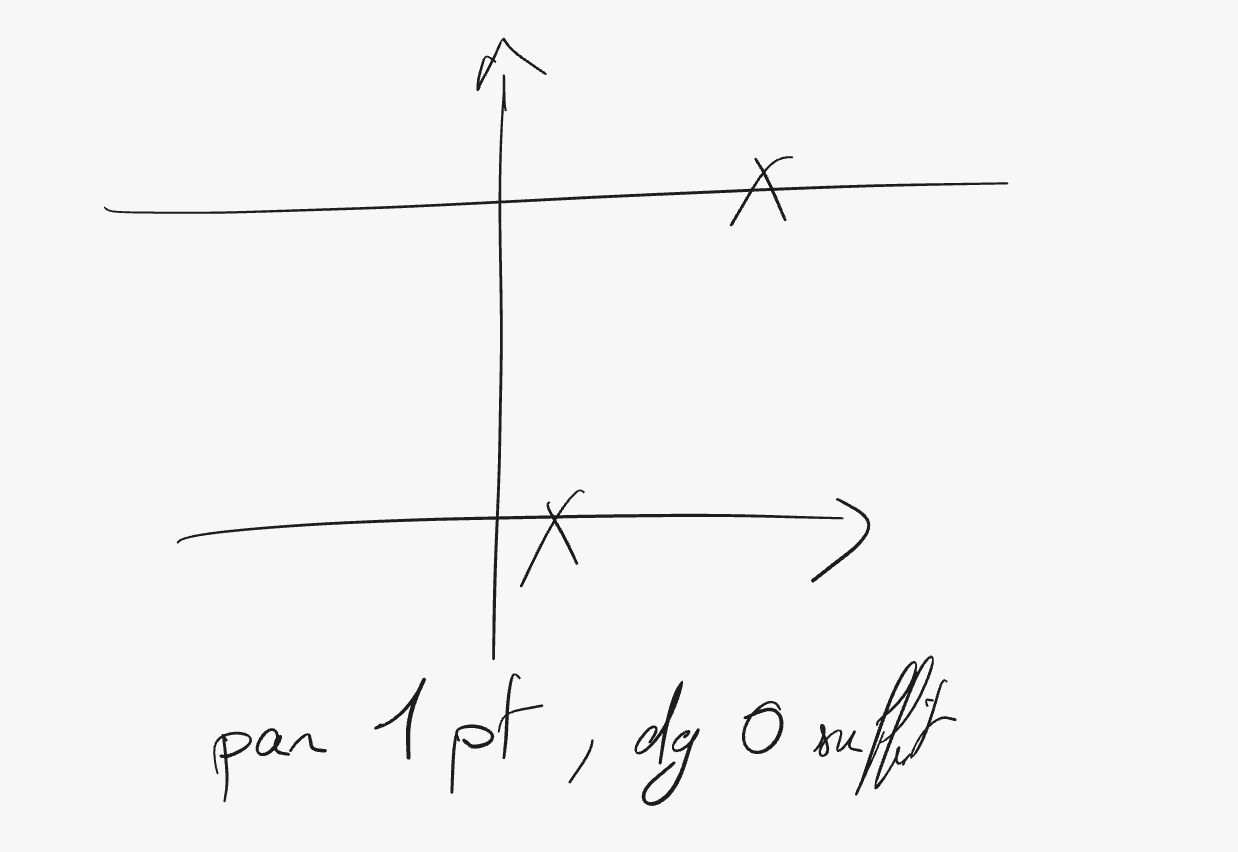 par 1 pt, dg 0 suffit